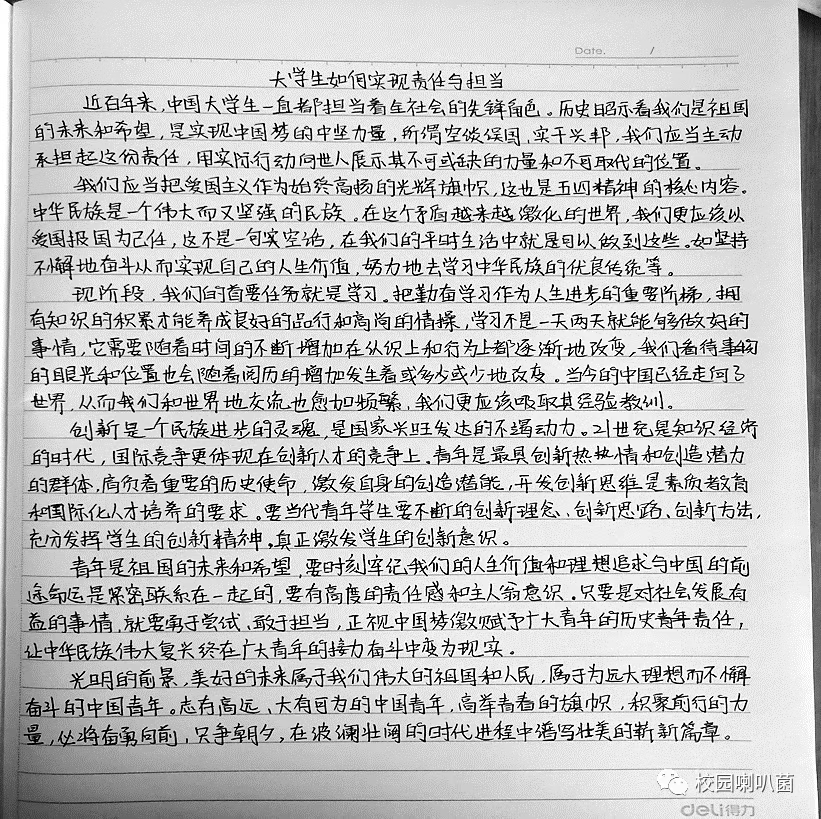 Date. /
大学生如何实现责任与担当
近百年来，中国大学生一直都担当着全社会的先锋角色。历史昭示着我们是祖国
的未来和希望，是实现中国梦的中坚力量，所谓空谈误国，实干兴邦，我们应当主动
承担起这份责任，用实际行动向世人展示其不可或缺的力量和不可取代的位置。
我们应当把爱国主义作为始终高扬的光辉旗帜，这也是五四精神的核心内容。
中华民族是一个伟大而又坚强的民族。在这个矛盾越来越激化的世界，我们更应该以
爱国报国为己任，这不是一句实空话，在我们的平时生活中就是可以做到这些。如坚持
不懈地奋斗从而实现自己的人生价值，努力地去学习中华民族的优良传统等。
现阶段，我们的首要任务就是学习。把勤奋学习作为人生进步的重要阶梯，拥
有知识的积累才能养成良好的品行和高尚的情操，学习不是一天两天就能够做好的
事情，它需要随着时间的不断增加在认识上和行为上都逐渐地改变，我们看待事物
的眼光和位置也会随着阅历的增加发生着或多少或少地改变。当今的中国已经走向了
世界，从而我们和世界地交流也愈加频繁，我们更应该吸取其经验教训。
创新是一个民族进步的灵魂，是国家兴旺发达的不竭动力。21世纪是知识经济
的时代，国际竞争更体现在创新人才的竞争上。青年是最具创新热情和创造潜力
的群体，肩负着重要的历史使命，激发自身的创造潜能，开发创新思维是素质教育
和国际化人才培养的要求。要当代青年学生要不断的创新理念、创新思路、创新方法，
充分发挥学生的创新精神，真正激发学生的创新意识。
青年是祖国的未来和希望，要时刻牢记我们的人生价值和理想追求与中国的前
途命运是紧密联系在一起的，要有高度的责任感和主人翁意识。只要是对社会发展有
益的事情，就要勇于尝试、敢于担当，正视中国梦赋予广大青年的历史责任，
让中华民族伟大复兴终在广大青年的接力奋斗中变为现实。
光明的前景，美好的未来属于我们伟大的祖国和人民，属于为远大理想而不懈
奋斗的中国青年。志有高远、大有可为的中国青年，高举青春的旗帜，积聚前行的力
量，必将奋勇向前，只争朝夕，在波澜壮阔的时代进程中谱写壮美的崭新篇章。
校园喇叭菌
deli得力